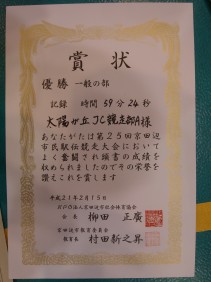 賞状
優勝 一般の部
記録 時間 59分 24秒
太陽が丘JC競走部A様
あなたがたは第25回京田辺
市民駅伝競走大会において
よく奮闘され頭書の成績を
収められましたのでその栄誉を
讃えこれを賞します
平成21年2月15日
会長 柳田 正廣
京田辺市教育委員会
教育長 村田新之昇